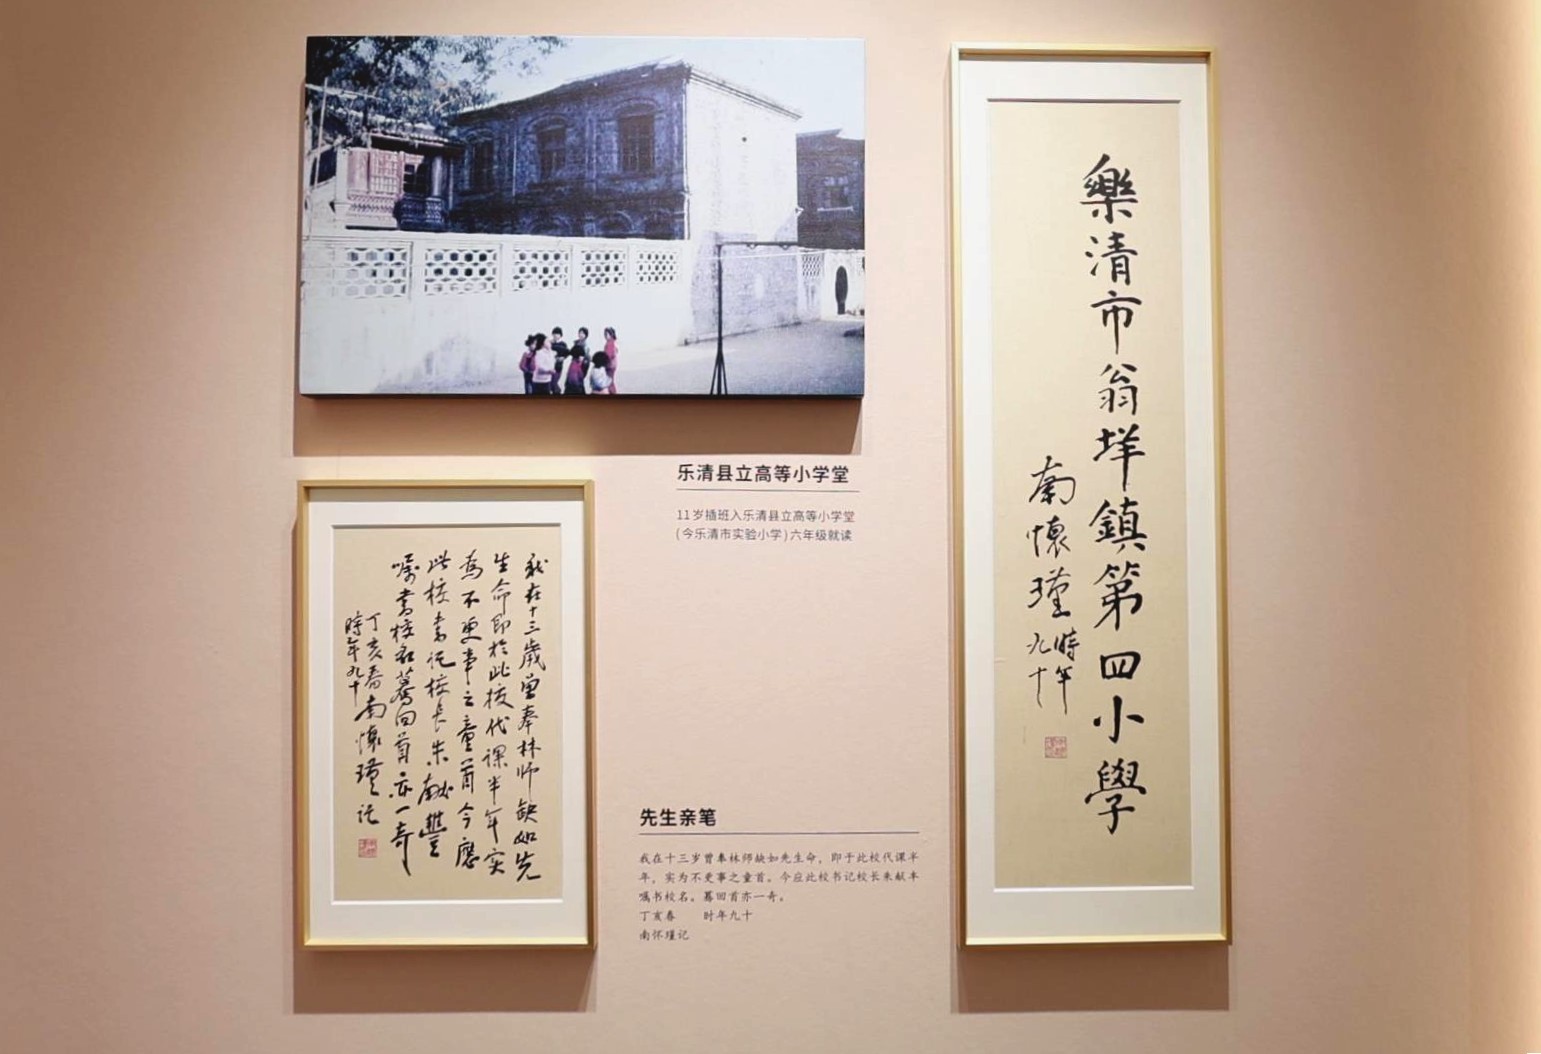 乐清县立高等小学堂
11岁插班入乐清县立高等小学堂
(今乐清市实验小学)六年级就读
我在十三歲曾奉林师缺如先
生命即於此校代課半年实
為不更事之童首今應
此校書记校長朱献豐
嘱書校名蓦回首亦一奇
丁亥春南懷瑾记
時年九十
先生亲笔
我在十三岁曾奉林师缺如先生命，即于此校代课半
年，实为不更事之童首。今应此校书记校长朱献丰
嘱书校名。蓦回首亦一奇。
丁亥春 时年九十
南怀瑾记
樂清市翁垟鎮第四小學
南懷瑾時年
九十